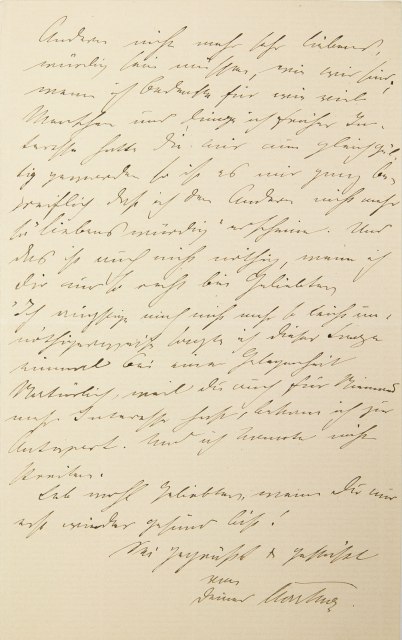 Anderen nicht mehr sehr liebens,
würdig sein müssen, wie wir sind,
wenn ich bedenke für wie viel
Menschen und Dinge ich früher In-
teresse hatte die mir nun gleichgül-
tig geworden so ist es mir ganz be-
greiflich daß ich den Anderen nicht mehr
so "liebenswürdig" erscheine. Und
das ist auch nicht nöthig, wenn ich
dir nur so recht bin Geliebter,
"Ich mich nicht mehr so leicht un-
nöthigerweise sagte ich dieser Tage
einmal bei einer Gelegenheit
Natürlich, weil du auch für Niemand
mehr Interesse hast, bekam ich zur
Antwort. Und ich konnte nicht
streiten.
Leb wohl Geliebter, wenn Du nur
erst wieder gesund bist!
Sei gegrüßt & geküßt
von
Deiner